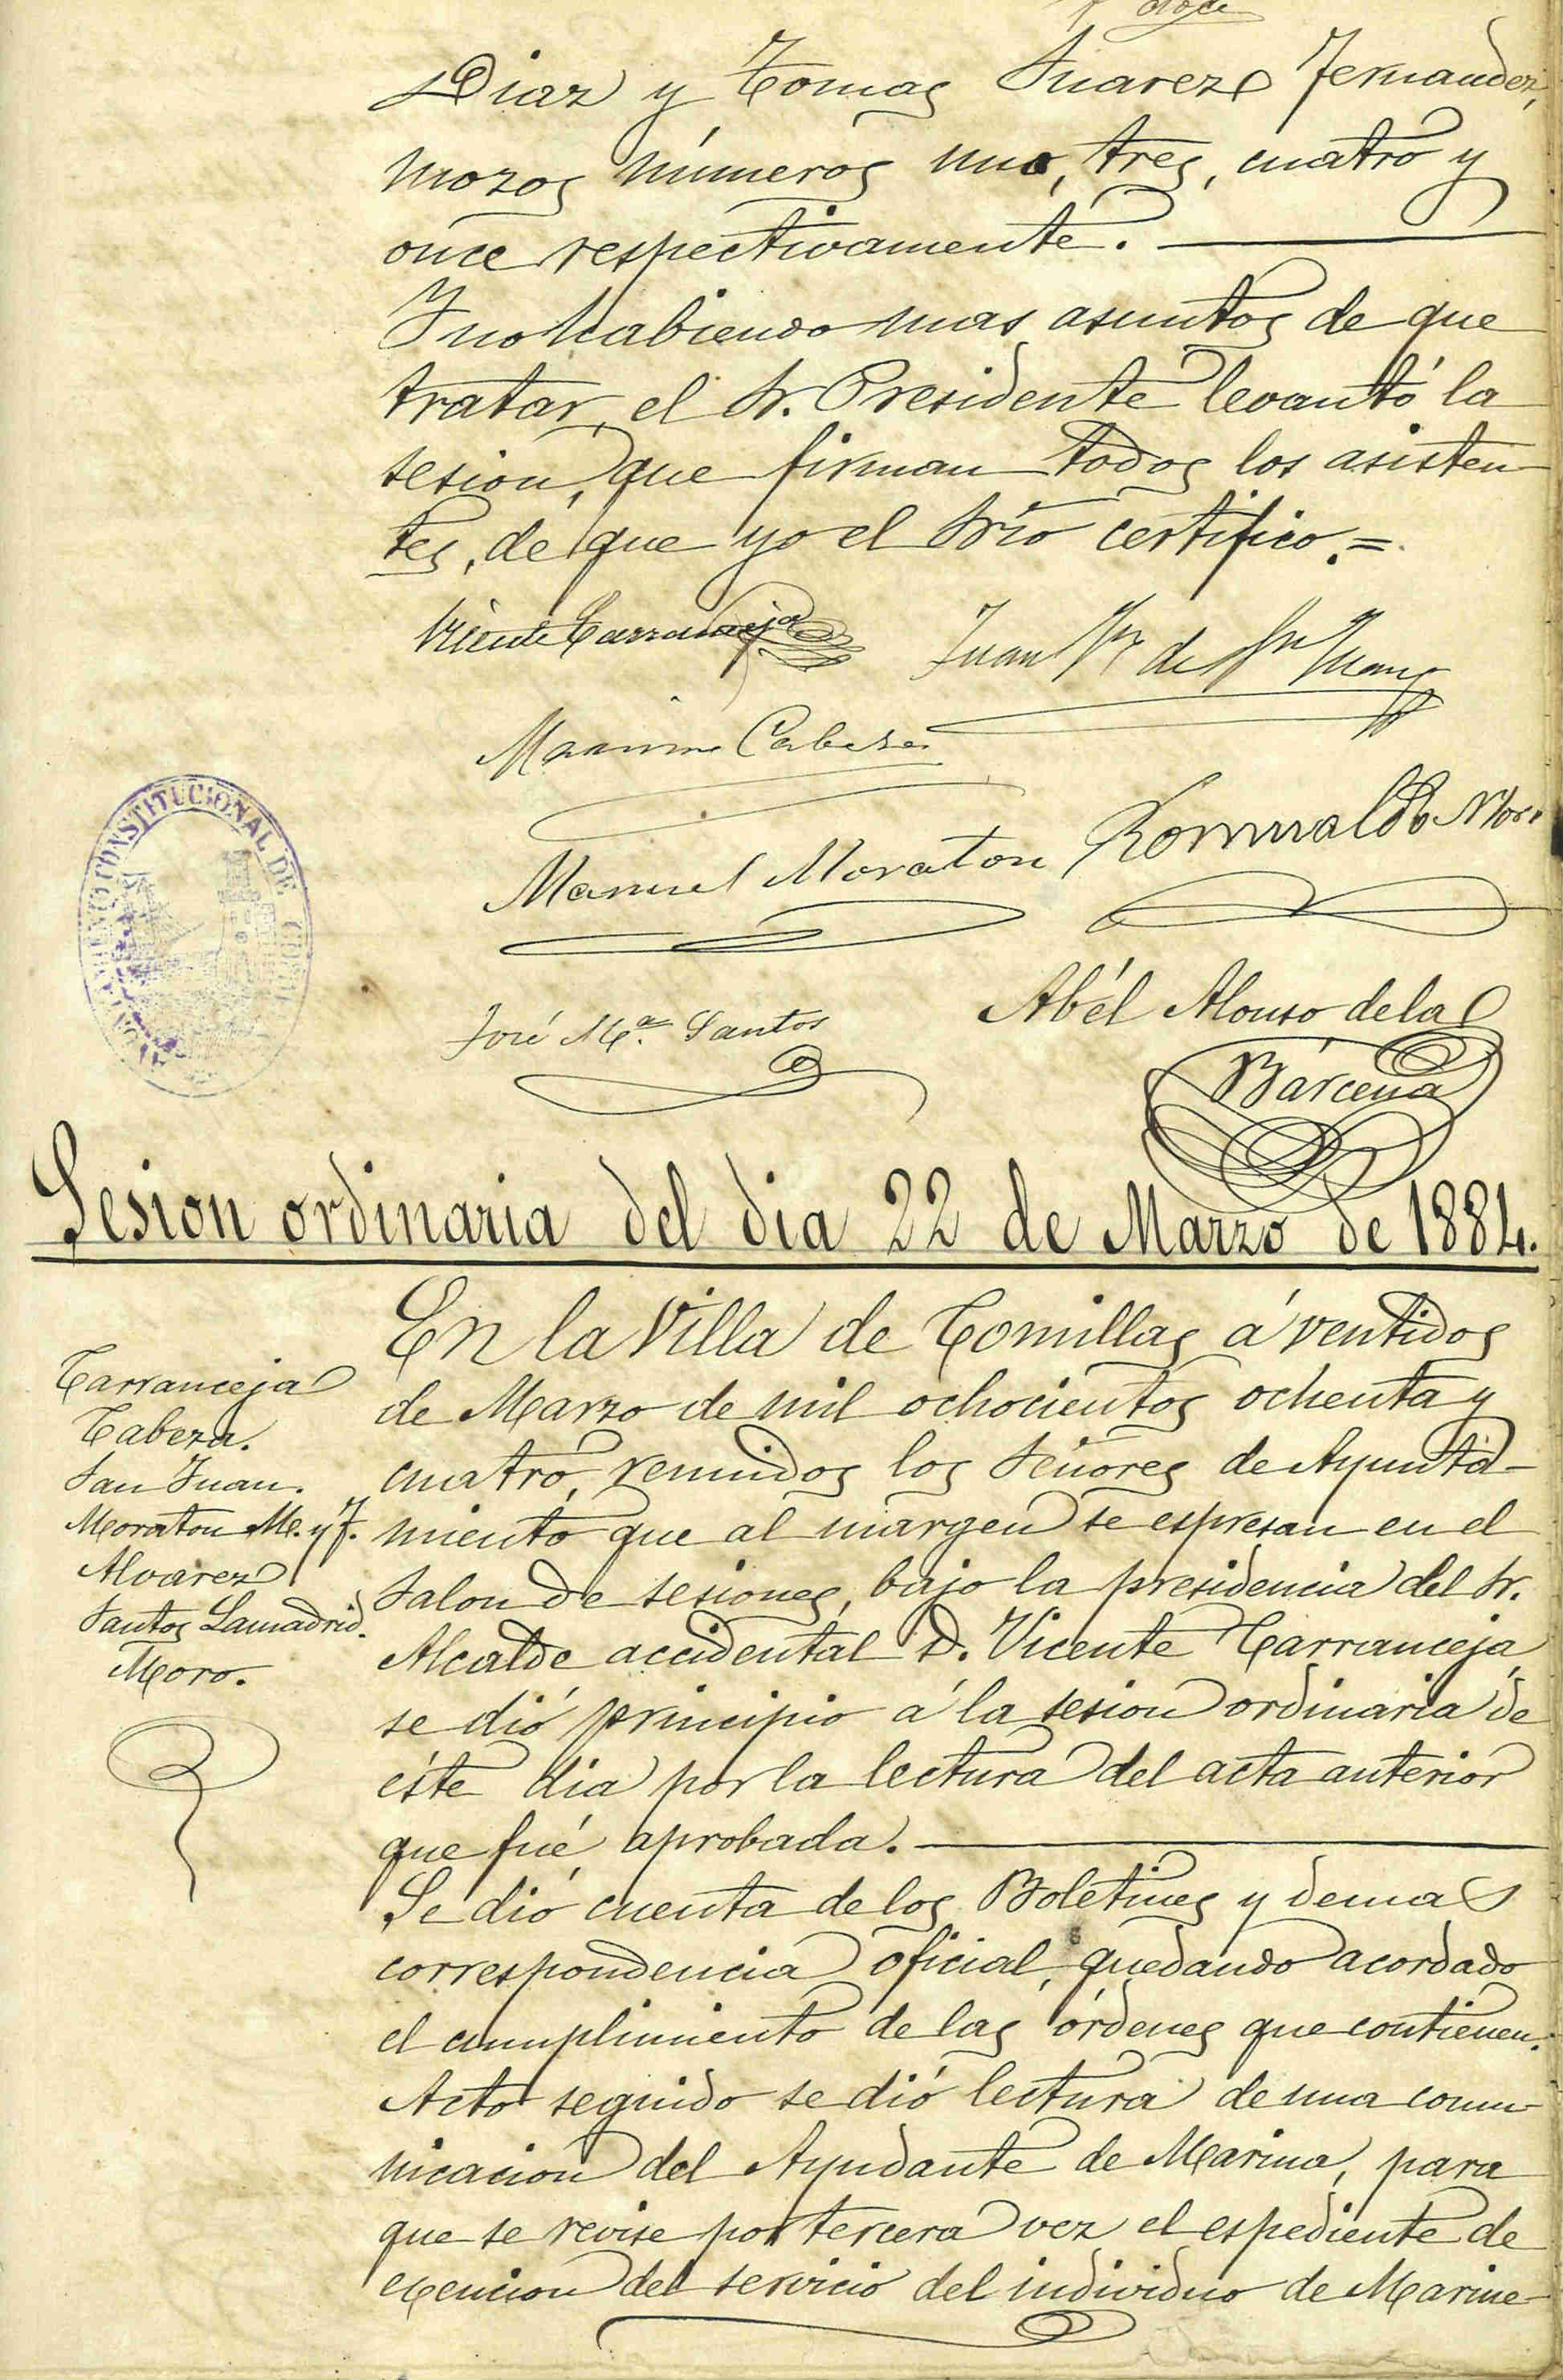 doce
Diaz y Tomas Suarez Fernandez,
mozos números uno, tres, cuatro y
once respectivamente.
Y no habiendo mas asuntos de que
tratar, el Sr. Presidente levantó la
sesion, que firman todos los asisten
tes, de que yo el Srio certifico.=
Vicente Carranceja
Juan de Sn Juan
Maximo Cabeza
Manuel Moraton
Romualdo Moro
AYUNTAMIENTO CONSTITUCIONAL DE
José Ma. Santos
Abél Alonso de la
Bárcena
Sesion ordinaria del dia 22 de Marzo de 1884.
Carranceja
Cabeza.
San Juan.
Moraton M. y F.
Alvarez
Santos Lamadrid.
Moro.
En la Villa de Comillas á ventidos
de Marzo de mil ochocientos ochenta y
cuatro, reunidos los Señores de Ayunta-
miento que al margen se espresan en el
Salon de sesiones, bajo la presidencia del Sr.
Alcalde accidental D. Vicente Carranceja,
se dió principio á la sesion ordinaria de
éste dia por la lectura del acta anterior
que fué aprobada.
Se dió cuenta de los Boletines y demas
correspondencia oficial, quedando acordado
el cumplimiento de las órdenes que contienen.
Acto seguido se dió lectura de una comu-
nicacion del Ayudante de Marina, para
que se revise por tercera vez el espediente de
exencion del servicio del individuo de Marine-